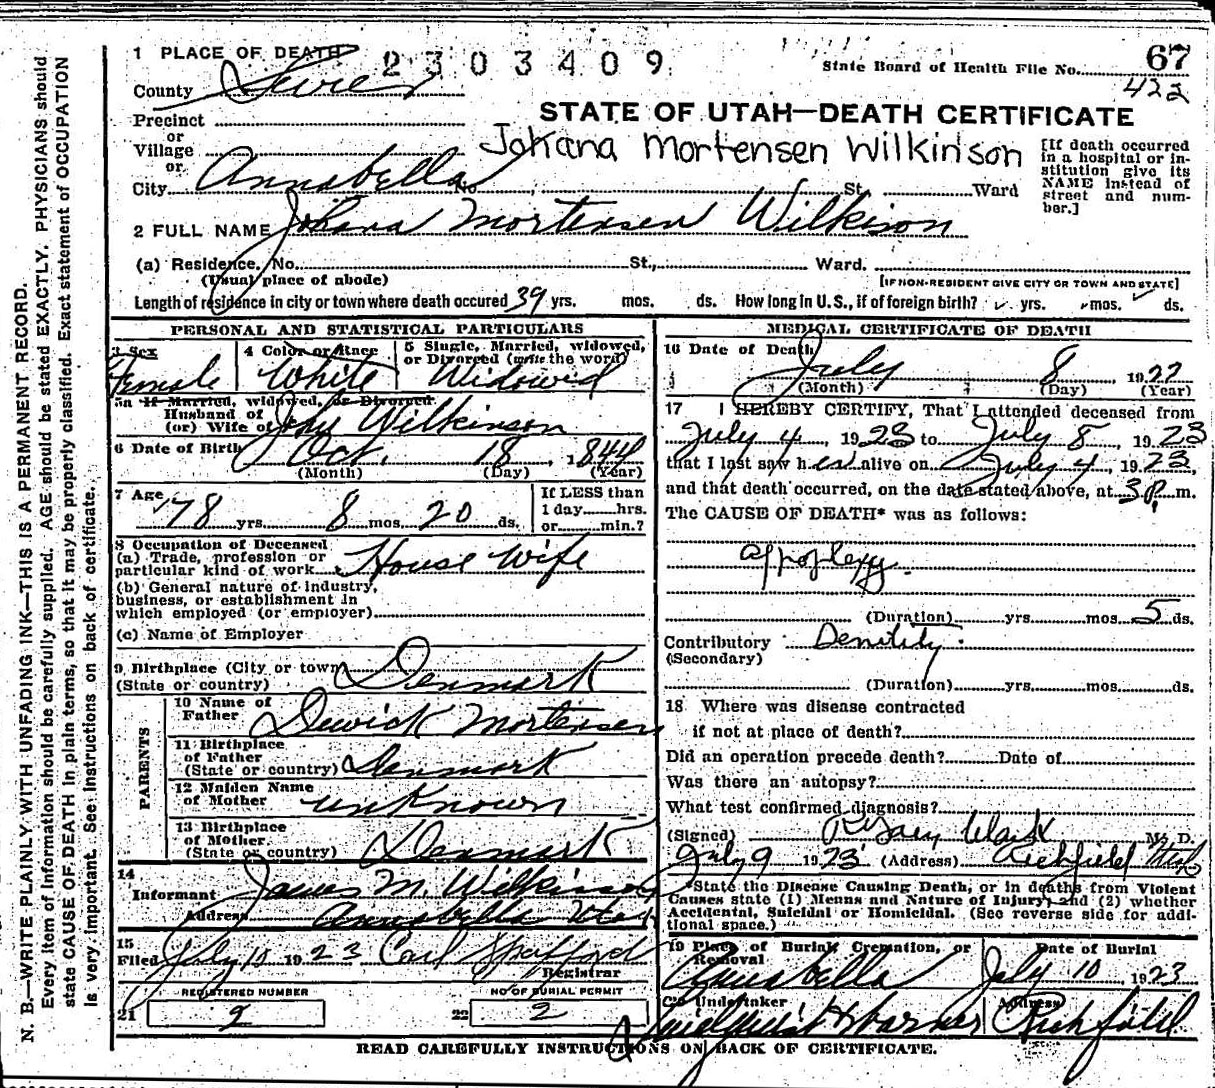 1 PLACE OF DEATH
2303409
State Board of Health File No. 67
422
County Sevier
STATE OF UTAH—DEATH CERTIFICATE
Precinct
or
Village
or
Johana Mortensen Wilkinson
[If death occurred in a hospital or institution give its NAME instead of street and number.]
City Annabella No. St. Ward
2 FULL NAME Johana Mortensen Wilkison
(a) Residence. No. St., Ward.
(Usual place of abode) [IF NON-RESIDENT GIVE CITY OR TOWN AND STATE]
Length of residence in city or town where death occured 39 yrs. mos. ds. How long in U.S., if of foreign birth? yrs. mos. ds.
PERSONAL AND STATISTICAL PARTICULARS
3 Sex
Female
4 Color or Race
White
5 Single, Married, widowed,
or Divorced (write the word)
Widowed
5a If Married, widowed, or Divorced
Husband of
(or) Wife of John Wilkinson
6 Date of Birth Oct. 18, 1844
(Month) (Day) (Year)
7 Age
78 yrs. 8 mos. 20 ds.
If LESS than
1 day hrs.
or min.?
8 Occupation of Deceased
(a) Trade, profession or
particular kind of work House Wife
(b) General nature of industry,
business, or establishment in
which employed (or employer)
(c) Name of Employer
9 Birthplace (City or town
(State or country) Denmark
PARENTS
10 Name of
Father Mortensen
11 Birthplace
of Father
(State or country) Denmark
12 Maiden Name
of Mother unknown
13 Birthplace
of Mother
(State or country) Denmark
14
Informant James M. Wilkinson
Address Annabella Utah
15
Filed July 10 1923 Carl Spafford
Registrar
REGISTERED NUMBER
21 2
NO OF BURIAL PERMIT
22 2
MEDICAL CERTIFICATE OF DEATH
16 Date of Death July 8, 1922
(Month) (Day) (Year)
17 I HEREBY CERTIFY, That I attended deceased from
July 4, 1923 to July 8, 1923
that I last saw her alive on July 4, 1923,
and that death occurred, on the date stated above, at 3 P. m.
The CAUSE OF DEATH* was as follows:
appoplexy.
(Duration) yrs. mos. 5 ds.
Contributory
(Secondary)
(Duration) yrs. mos. ds.
18 Where was disease contracted
if not at place of death?
Did an operation precede death? Date of
Was there an autopsy?
What test confirmed diagnosis?
(Signed) M. D.
July 9 1923 (Address) Richfield Utah
*State the Disease Causing Death, or in deaths from Violent
Causes state (1) Means and Nature of Injury; and (2) whether
Accidental, Suicidal or Homicidal. (See reverse side for additional space.)
19 Place of Burial, Cremation, or
Removal
Annabella
Date of Burial
July 10 1923
20 Undertaker
Address
Richfield
READ CAREFULLY INSTRUCTIONS ON BACK OF CERTIFICATE.
N. B.—WRITE PLAINLY WITH UNFADING INK—THIS IS A PERMANENT RECORD.
Every item of information should be carefully supplied. AGE should be stated EXACTLY. PHYSICIANS should
state CAUSE OF DEATH in plain terms, so that it may be properly classified. Exact statement of OCCUPATION
is very important. See instructions on back of certificate.